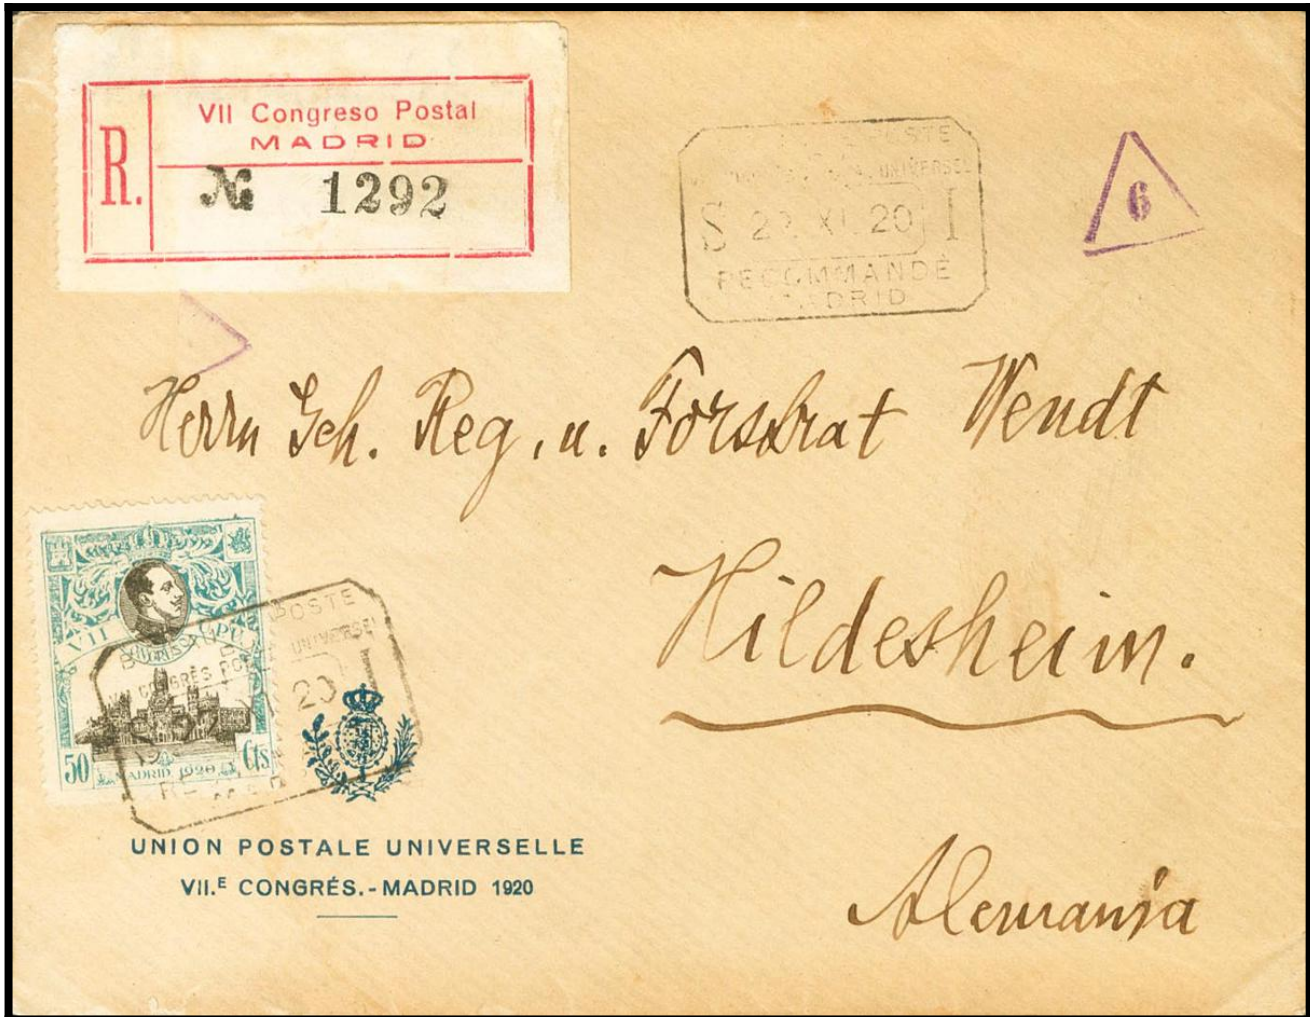 VII Congreso Postal
MADRID
R.
№ 1292
POSTE
UNIVERSEL
S 2 XI. 20 I
RECOMMANDÉ
MADRID
6
Herrn Geh. Reg. u. Forstrat Wendt
Hildesheim.
Alemania
VII
UPU
50 Cts
MADRID 1920
POSTE
CONGRÈS UNIVERSEL
20 I
UNION POSTALE UNIVERSELLE
VII.E CONGRÉS.-MADRID 1920